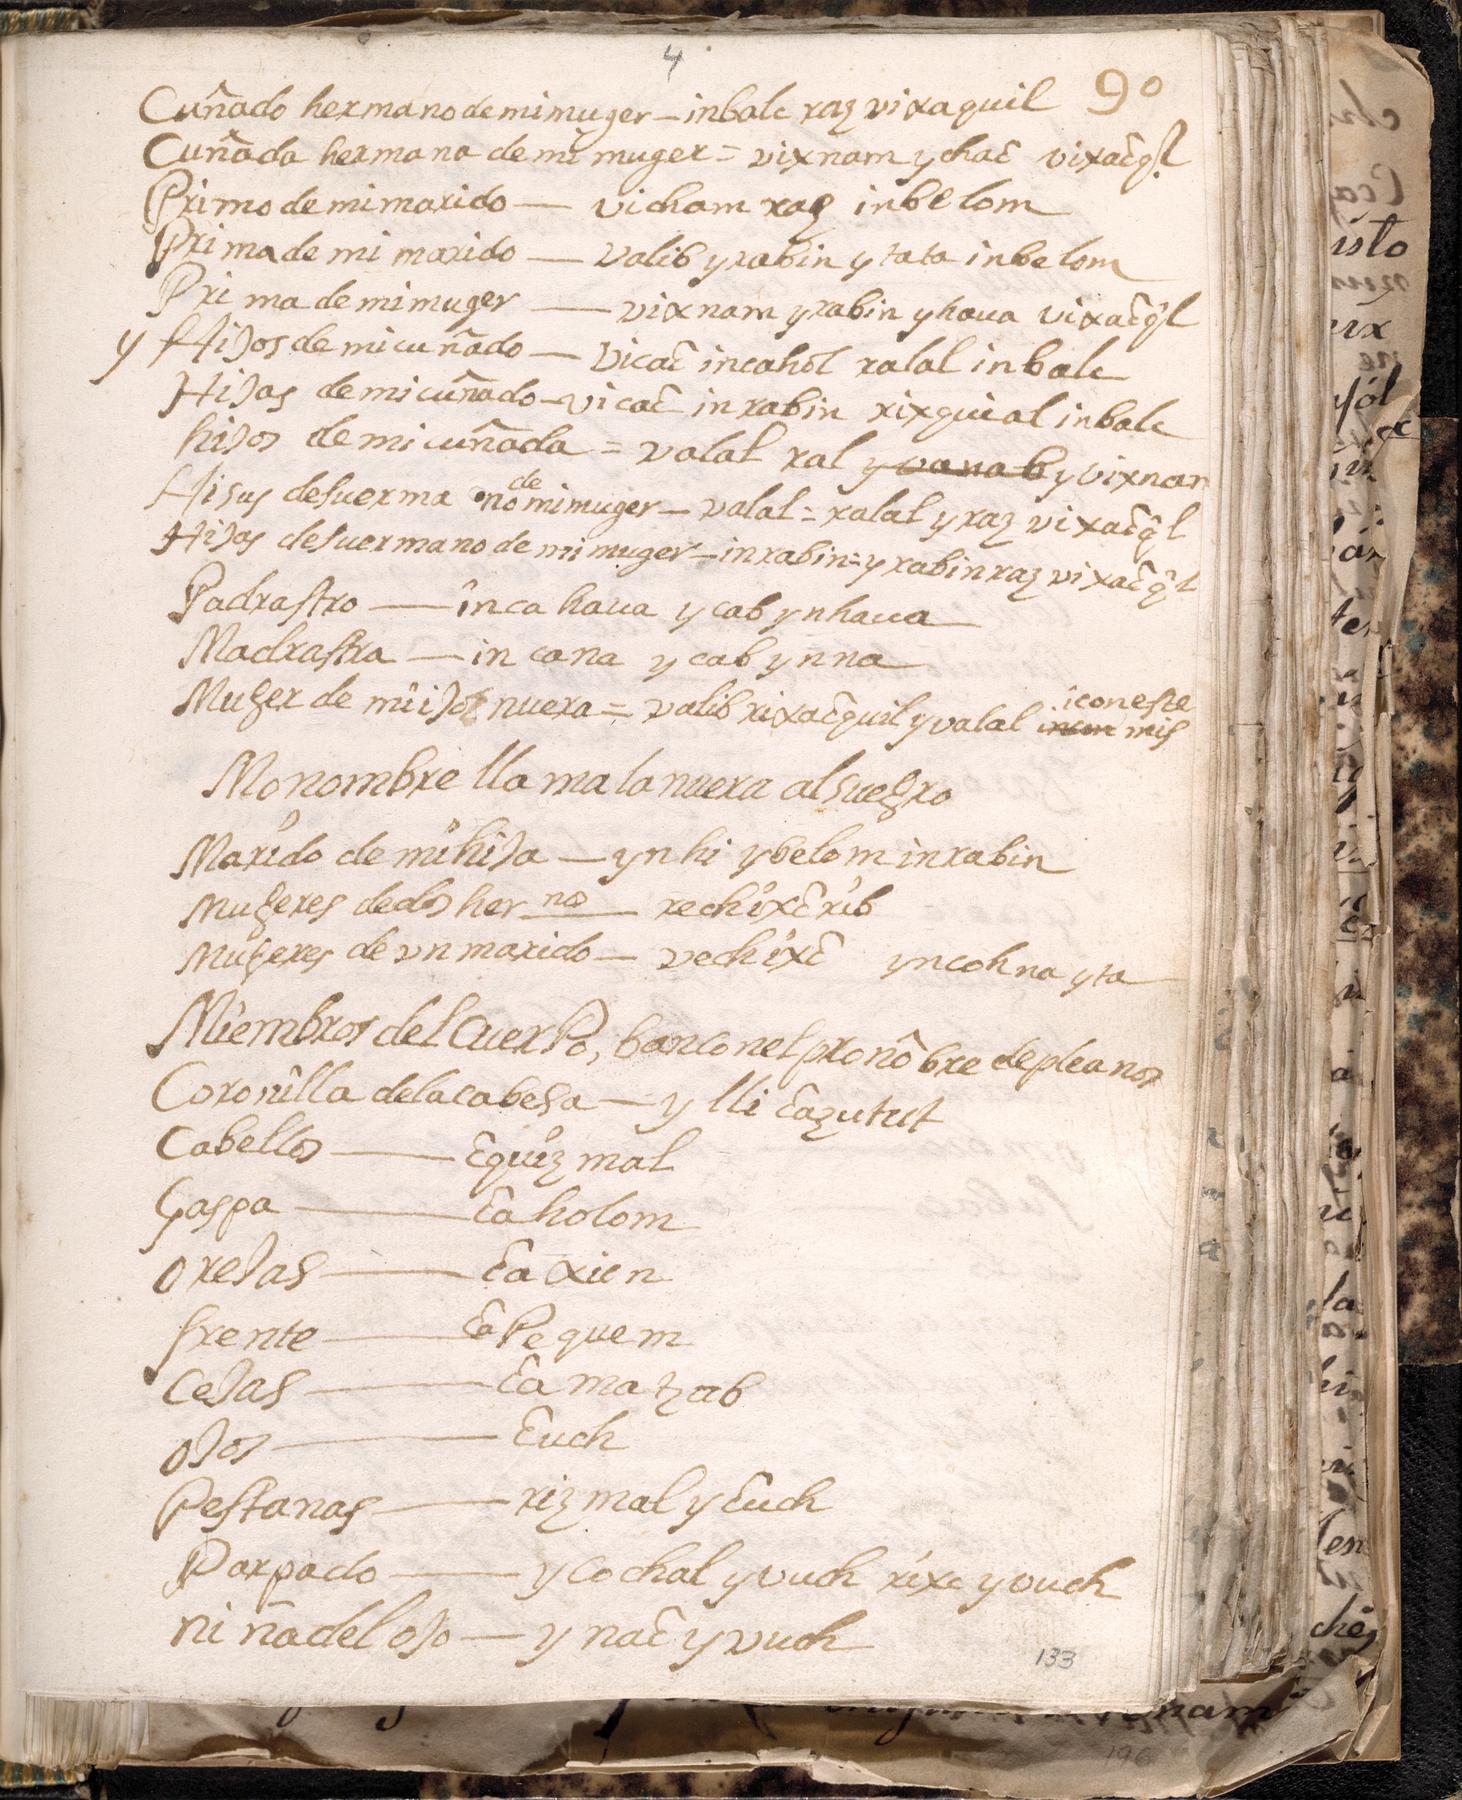 4
90
Cuñado hermano de mi muger — inbalc raz vixaquil
Cuñada hermana de mi muger = vixnam ychac̃ vixac̃q̃l
Primo de mi marido — vicham raz inbelom
Prima de mi marido — valib yrabin ytata inbelom
Prima de mi muger — vixnam yrabin yhaua vixac̃q̃l
y Hijos de mi cuñado — vicac̃ incahol ralal inbalc
Hijas de mi cuñado — vicac̃ inrabin rixquial inbalc
hijos de mi cuñada = valal ral y vanab y vixnam
Hijus desuerma no de mi muger — valal = ralal yraz vixac̃q̃l
Hijas desuermano de mi muger — inrabin = yrabin raz vixac̃q̃l
Padrastro — inca haua ycab ynhaua
Madrastra — in cana ycab ynna
Muger de miijo nuera = valib rixac̃quil y valal iconeste mis
Mo nombre llama la nuera al suegro
Marido de mi hija — ynhi ybelom inrabin
Mugeres de dos her nos — rechixc̃ rib
Mugeres de vn marido — vechixc̃ yncohna yta
Miembros del Cuerpo, banconel pronõbre de pleanos
Coronilla dela cabesa — ylli c̃azutut
Cabellos — c̃quizmal
Caspa — c̃aholom
orejas — c̃axien
frente — c̃a Pequem
cejas — c̃amatzab
ojos — c̃uch
Pestanas — rizmal y c̃uch
Parpado — ycochal yvuch rixc yvuch
niña del ojo — y nac̃ yvuch
133
196